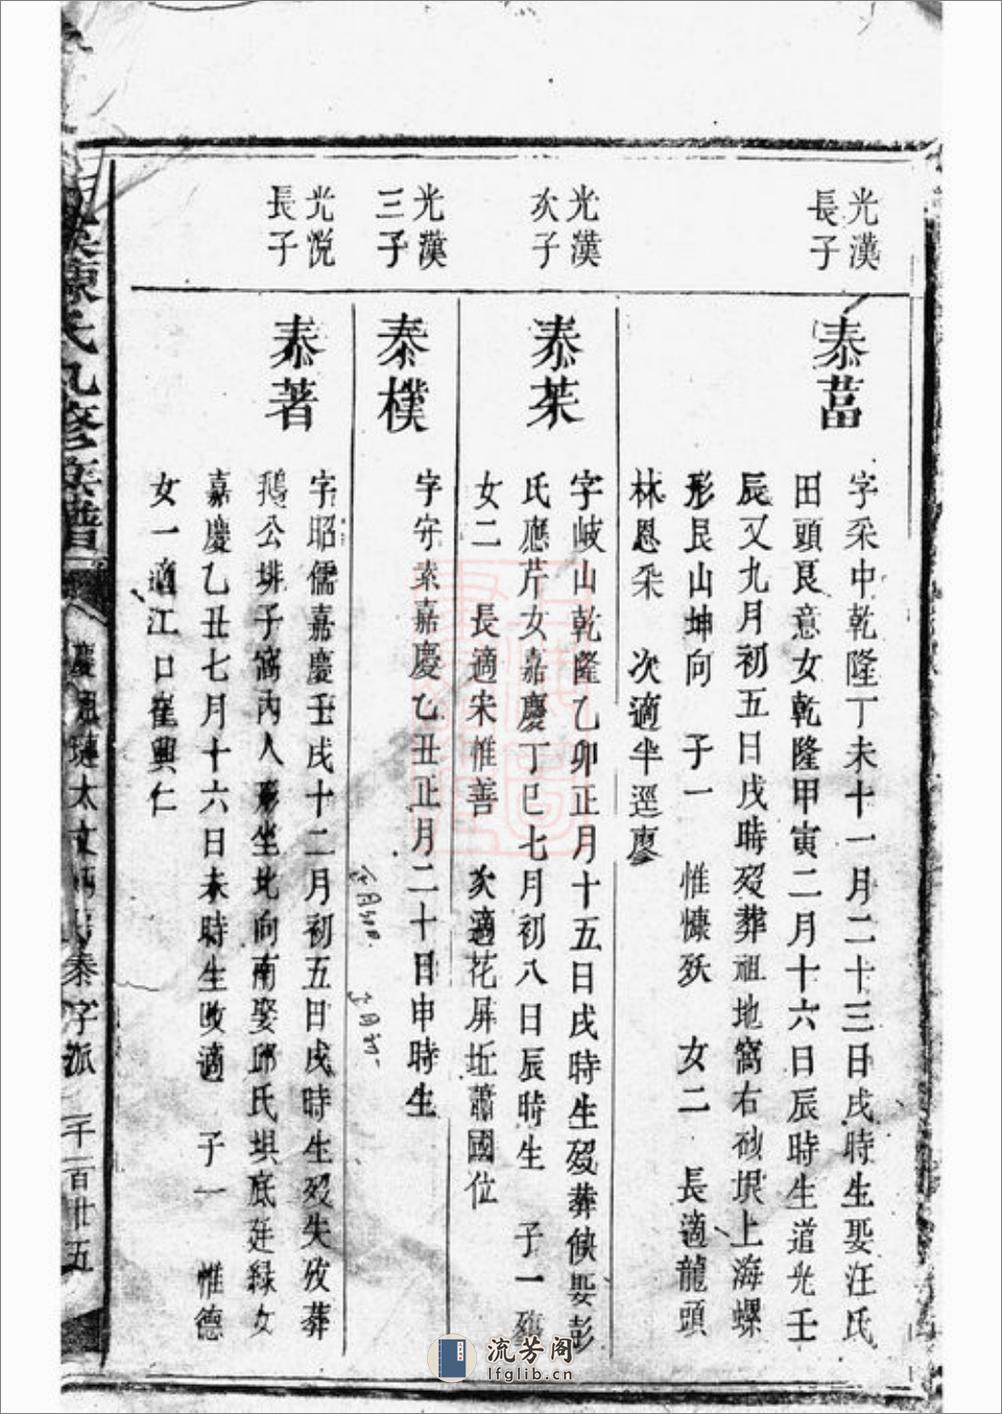 光漢
長子
泰菖
字采中乾隆丁未十一月二十三日戌時生娶汪氏
田頭艮意女乾隆甲寅二月十六日辰時生道光壬
辰又九月初五日戌時歿葬祖地窩右砂垻上海螺
形艮山坤向 子一 惟慷殀 女二 長適龍頭
林恩采 次適半逕廖
光漢
次子
泰茱
字岐山乾隆乙卯正月十五日戌時生歿葬缺娶彭
氏應芹女嘉慶丁巳七月初八日辰時生 子一 殤
女二 長適宋惟善 次適花屏坵蕭國位
光漢
三子
泰樸
字守素嘉慶乙丑正月二十日申時生
光悅
長子
泰著
字昭儒嘉慶壬戌十二月初五日戌時生歿失攷葬
鵝公排子窩內人形坐北向南娶邱氏垻底廷緑女
嘉慶乙丑七月十六日未時生改適 子一 惟德
女一適江口崔興仁
陳氏九修族譜
慶 璉太文 泰字派
千一百廿五
流芳阁
lfglib.cn